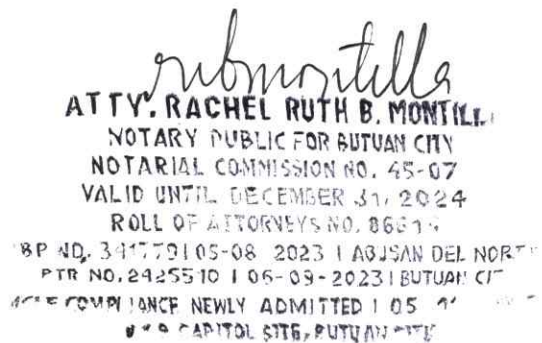 rrbmontilla
ATTY. RACHEL RUTH B. MONTILL
NOTARY PUBLIC FOR BUTUAN CITY
NOTARIAL COMMISSION NO. 45-07
VALID UNTIL DECEMBER 31, 2024
ROLL OF ATTORNEYS NO.
BP NO. 341779 | 05-08 2023 | AGUSAN DEL NORT
PTR NO. 2425510 | 06-09-2023 | BUTUAN CIT
COMPLIANCE NEWLY ADMITTED | 05
CAPITOL SITE, BUTUAN